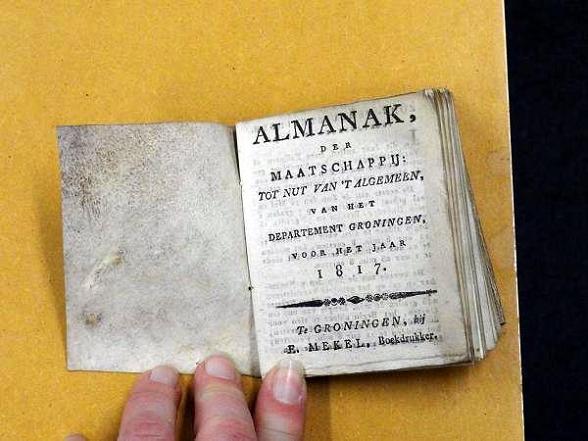 ALMANAK,
DER
MAATSCHAPPIJ:
TOT NUT VAN 'T ALGEMEEN,
VAN HET
DEPARTEMENT GRONINGEN,
VOOR HET JAAR
1817.
Te GRONINGEN, bij
E. MEKEL, Boekdrukker.